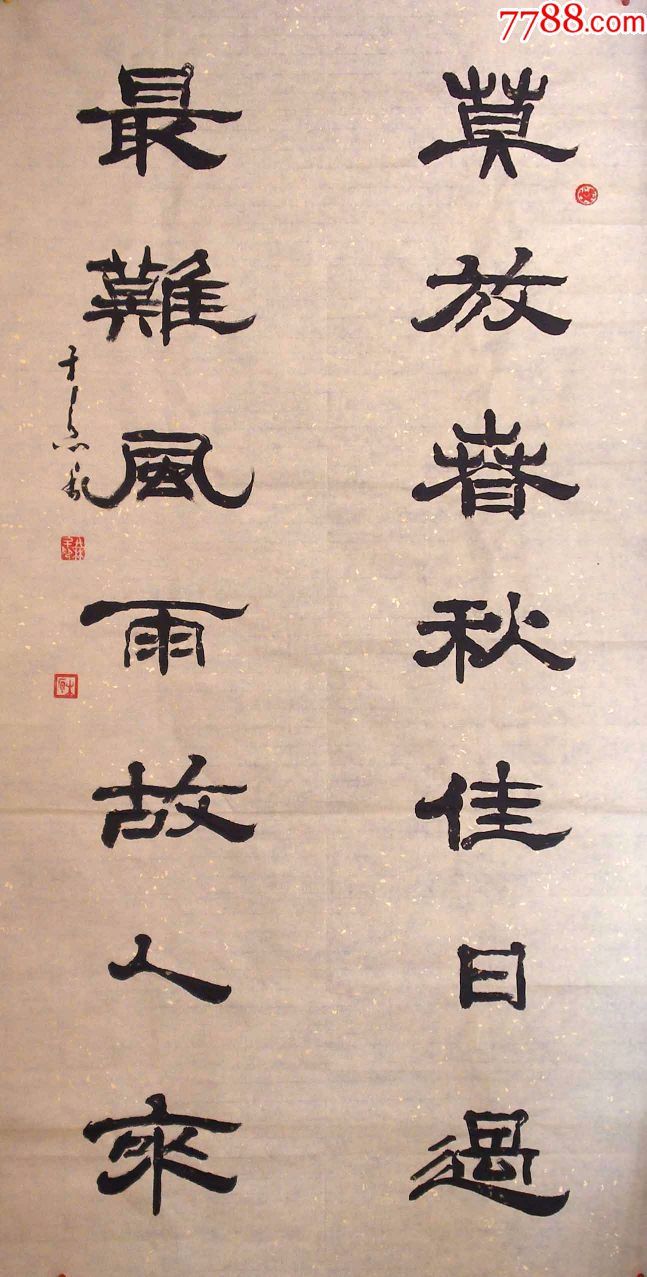 莫放春秋佳日過
最難風雨故人來
7788.com